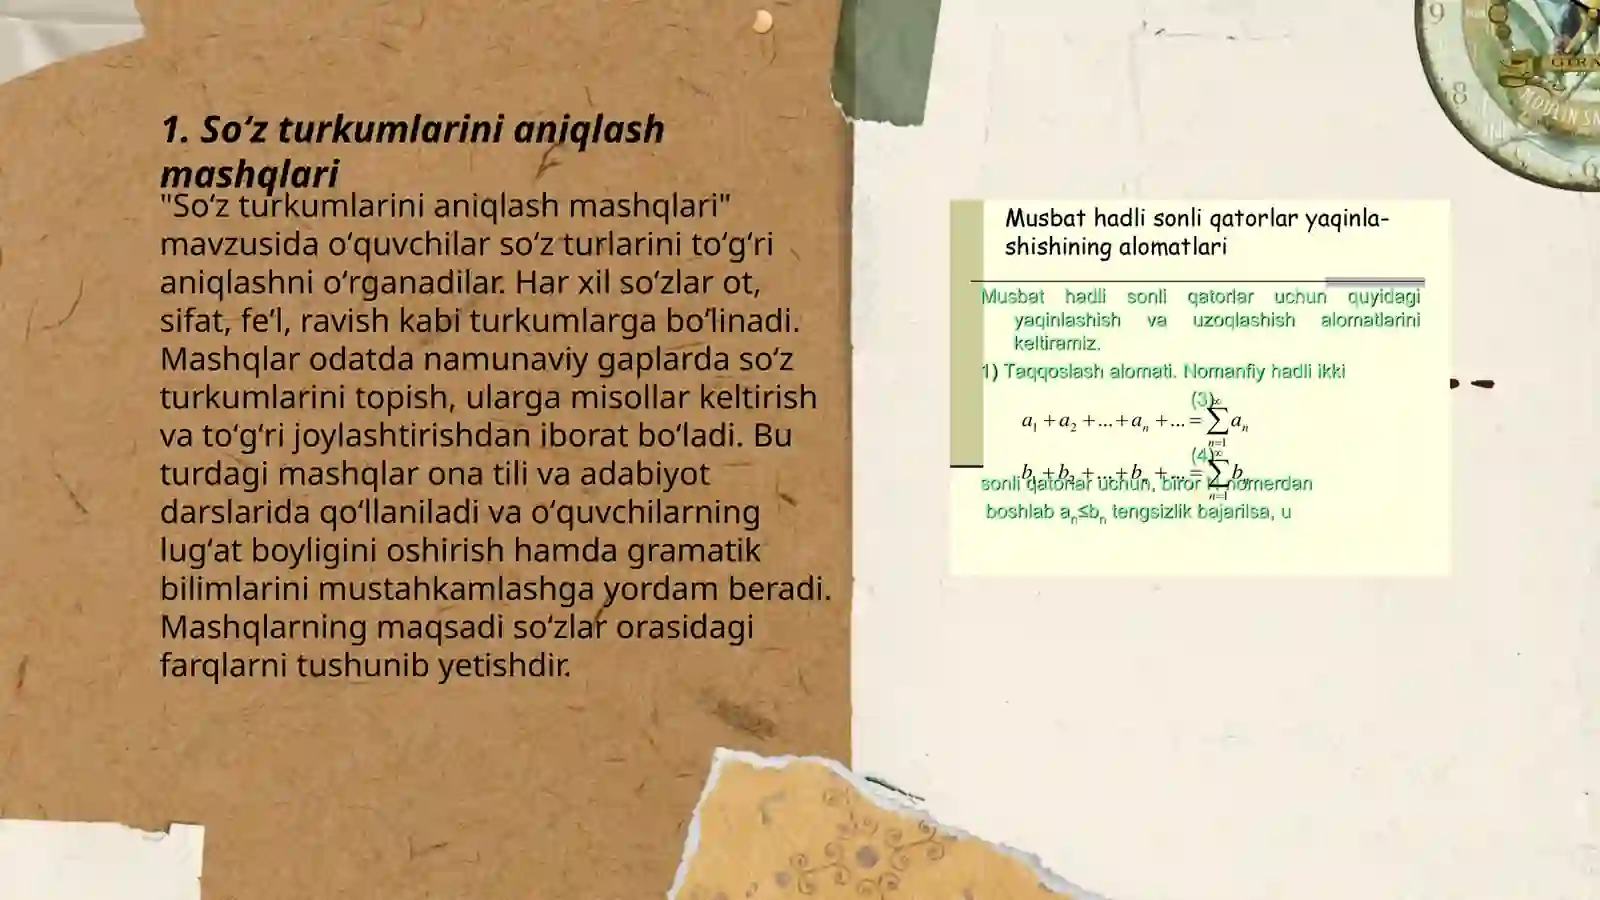 1. So‘z turkumlarini aniqlash
mashqlari
"So‘z turkumlarini aniqlash mashqlari"
mavzusida o‘quvchilar so‘z turlarini to‘g‘ri
aniqlashni o‘rganadilar. Har xil so‘zlar ot,
sifat, fe’l, ravish kabi turkumlarga bo‘linadi.
Mashqlar odatda namunaviy gaplarda so‘z
turkumlarini topish, ularga misollar keltirish
va to‘g‘ri joylashtirishdan iborat bo‘ladi. Bu
turdagi mashqlar ona tili va adabiyot
darslarida qo‘llaniladi va o‘quvchilarning
lug‘at boyligini oshirish hamda gramatik
bilimlarini mustahkamlashga yordam beradi.
Mashqlarning maqsadi so‘zlar orasidagi
farqlarni tushunib yetishdir.
Musbat hadli sonli qatorlar yaqinla-
shishining alomatlari
Musbat hadli sonli qatorlar uchun quyidagi
yaqinlashish va uzoqlashish alomatlarini
keltiramiz.
1) Taqqoslash alomati. Nomanfiy hadli ikki
(3)
a₁ + a₂ + ... + aₙ + ... = ∑ₙ₌₁^∞ aₙ
(4)
b₁ + b₂ + ... + bₙ + ... = ∑ₙ₌₁^∞ bₙ
sonli qatorlar uchun, biror N nomerdan
boshlab aₙ≤bₙ tengsizlik bajarilsa, u
9
8
6